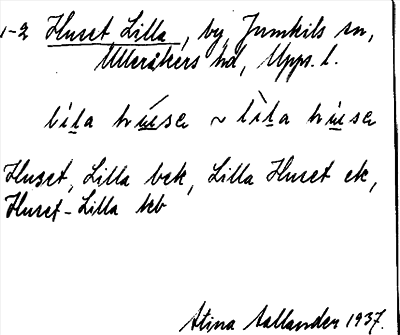 1-2 Huset Lilla, by, Jumkils sn,
Ulleråkers hd, Upps. l.
lìla húse ~ lìla hùse
Huset, Lilla bek, Lilla Huset ek,
Huset-Lilla kb
Stina Sallander 1937.